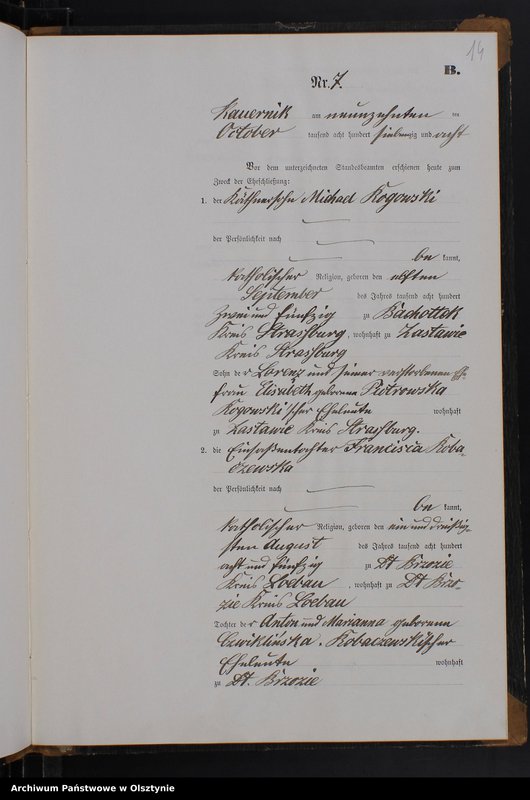 14
B.
Nr. 7.
Kauernik am neunzehnten ten
October tausend acht hundert siebenzig und acht
Vor dem unterzeichneten Standesbeamten erschienen heute zum
Zweck der Eheschließung:
1. der Käthnersohn Michael Rogowski
der Persönlichkeit nach
be kannt,
katholischer Religion, geboren den elften
September des Jahres tausend acht hundert
zwei und fünfzig zu Bachottek
Kreis Strasburg, wohnhaft zu Zastawie
Kreis Strasburg
Sohn der Lorenz und seiner verstorbenen Ehe-
frau Elisabeth geborene Piotrowska
Rogowski'scher Eheleute wohnhaft
zu Zastawie Kreis Strasburg.
2. die Einsaßentochter Francisca Koba
czewska
der Persönlichkeit nach
be kannt,
katholischer Religion, geboren den ein und dreißig-
sten August des Jahres tausend acht hundert
acht und fünfzig zu Dt Brzozie
Kreis Loebau, wohnhaft zu Dt Brzo-
zie Kreis Loebau
Tochter der Anton und Marianna geborene
Czwiklińska. Kobaczewski'scher
Eheleute wohnhaft
zu Dt. Brzozie
Archiwum Państwowe w Olsztynie